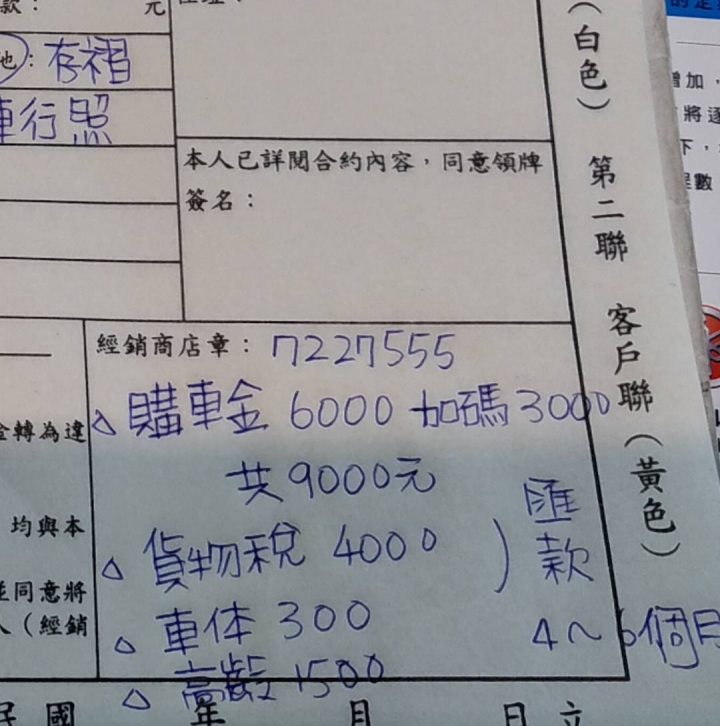 款： 元
（白色） 第二聯 客戶聯（黃色）
他：存褶
車行照
本人已詳閱合約內容，同意領牌
簽名：
經銷商店章： 7227555
△ 購車金 6000 加碼 3000
共 9000元
△ 貨物稅 4000 ) 匯款
△ 車体 300
4～6個月
△ 高齡 1500
金轉為違
均與本
並同意將
人（經銷
民國 年 月 日 立
增加，
將逐
下，